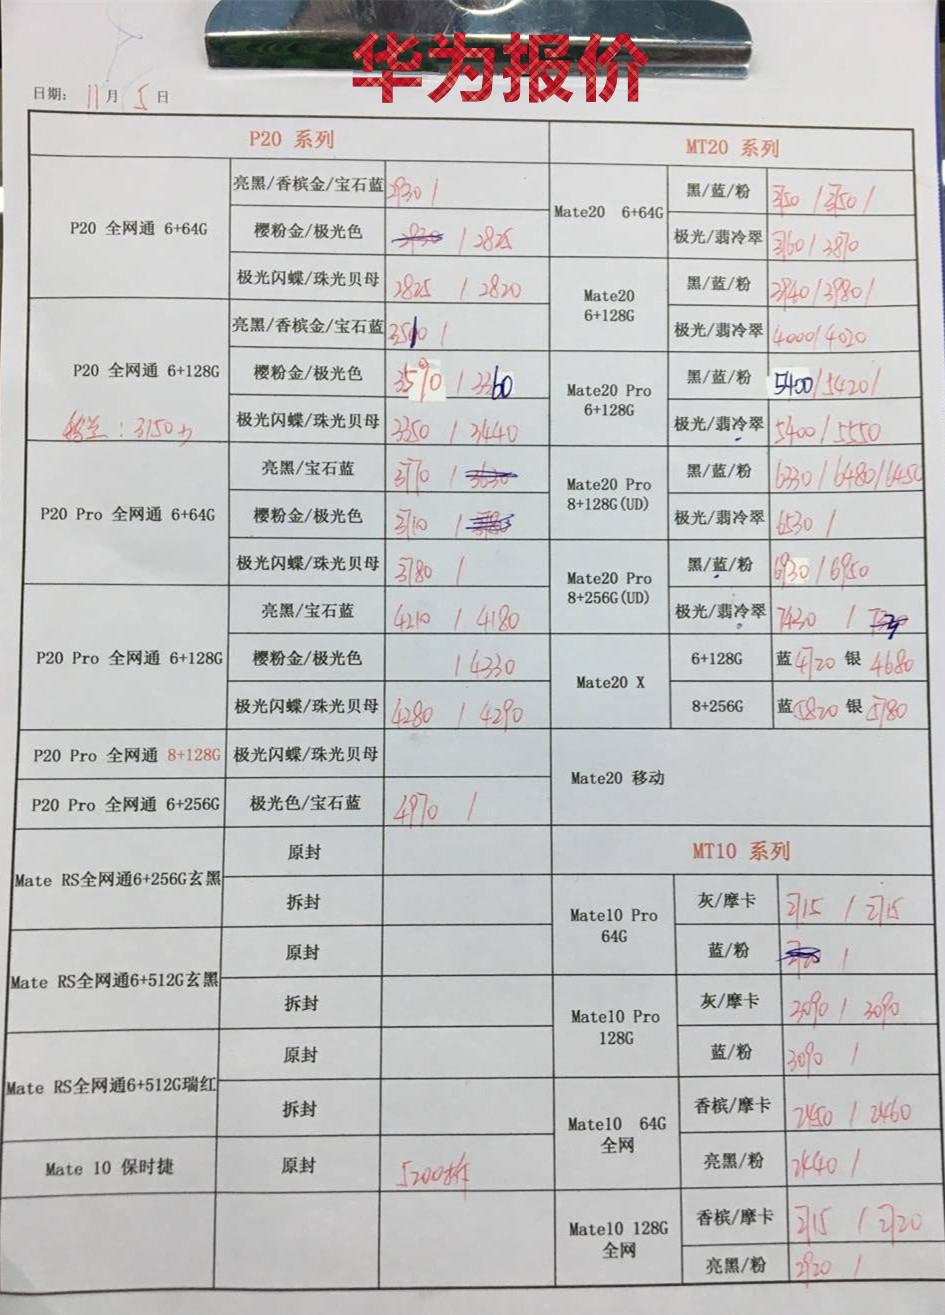 华为报价
日期: 11月 5日
P20 系列
P20 全网通 6+64G
亮黑/香槟金/宝石蓝 2930 /
樱粉金/极光色 / 2825
极光闪蝶/珠光贝母 2825 / 2820
P20 全网通 6+128G
粉兰:3150
亮黑/香槟金/宝石蓝
樱粉金/极光色 3590 / 3360
极光闪蝶/珠光贝母 3350 / 3440
P20 Pro 全网通 6+64G
亮黑/宝石蓝 3770 /
樱粉金/极光色 3710 /
极光闪蝶/珠光贝母 3780 /
P20 Pro 全网通 6+128G
亮黑/宝石蓝 4210 / 4180
樱粉金/极光色 / 4330
极光闪蝶/珠光贝母 4280 / 4290
P20 Pro 全网通 8+128G 极光闪蝶/珠光贝母
P20 Pro 全网通 6+256G 极光色/宝石蓝 4970 /
Mate RS全网通6+256G玄黑
原封
拆封
Mate RS全网通6+512G玄黑
原封
拆封
Mate RS全网通6+512G瑞红
原封
拆封
Mate 10 保时捷 原封 5200拆
MT20 系列
Mate20 6+64G
黑/蓝/粉 3750 / 3750 /
极光/翡冷翠 3760 / 3870
Mate20
6+128G
黑/蓝/粉 3940 / 3980 /
极光/翡冷翠 4000 / 4020
Mate20 Pro
6+128G
黑/蓝/粉 5400 / 5420 /
极光/翡冷翠 5400 / 5550
Mate20 Pro
8+128G(UD)
黑/蓝/粉 6330 / 6480 / 6450
极光/翡冷翠 6530 /
Mate20 Pro
8+256G(UD)
黑/蓝/粉 6930 / 6950
极光/翡冷翠 7430 /
Mate20 X
6+128G 蓝 4720 银 4680
8+256G 蓝 5820 银 5780
Mate20 移动
MT10 系列
Mate10 Pro
64G
灰/摩卡 2715 / 2715
蓝/粉 /
Mate10 Pro
128G
灰/摩卡 3090 / 3090
蓝/粉 3090 /
Mate10 64G
全网
香槟/摩卡 2450 / 2460
亮黑/粉 2440 /
Mate10 128G
全网
香槟/摩卡 2715 / 2720
亮黑/粉 2920 /